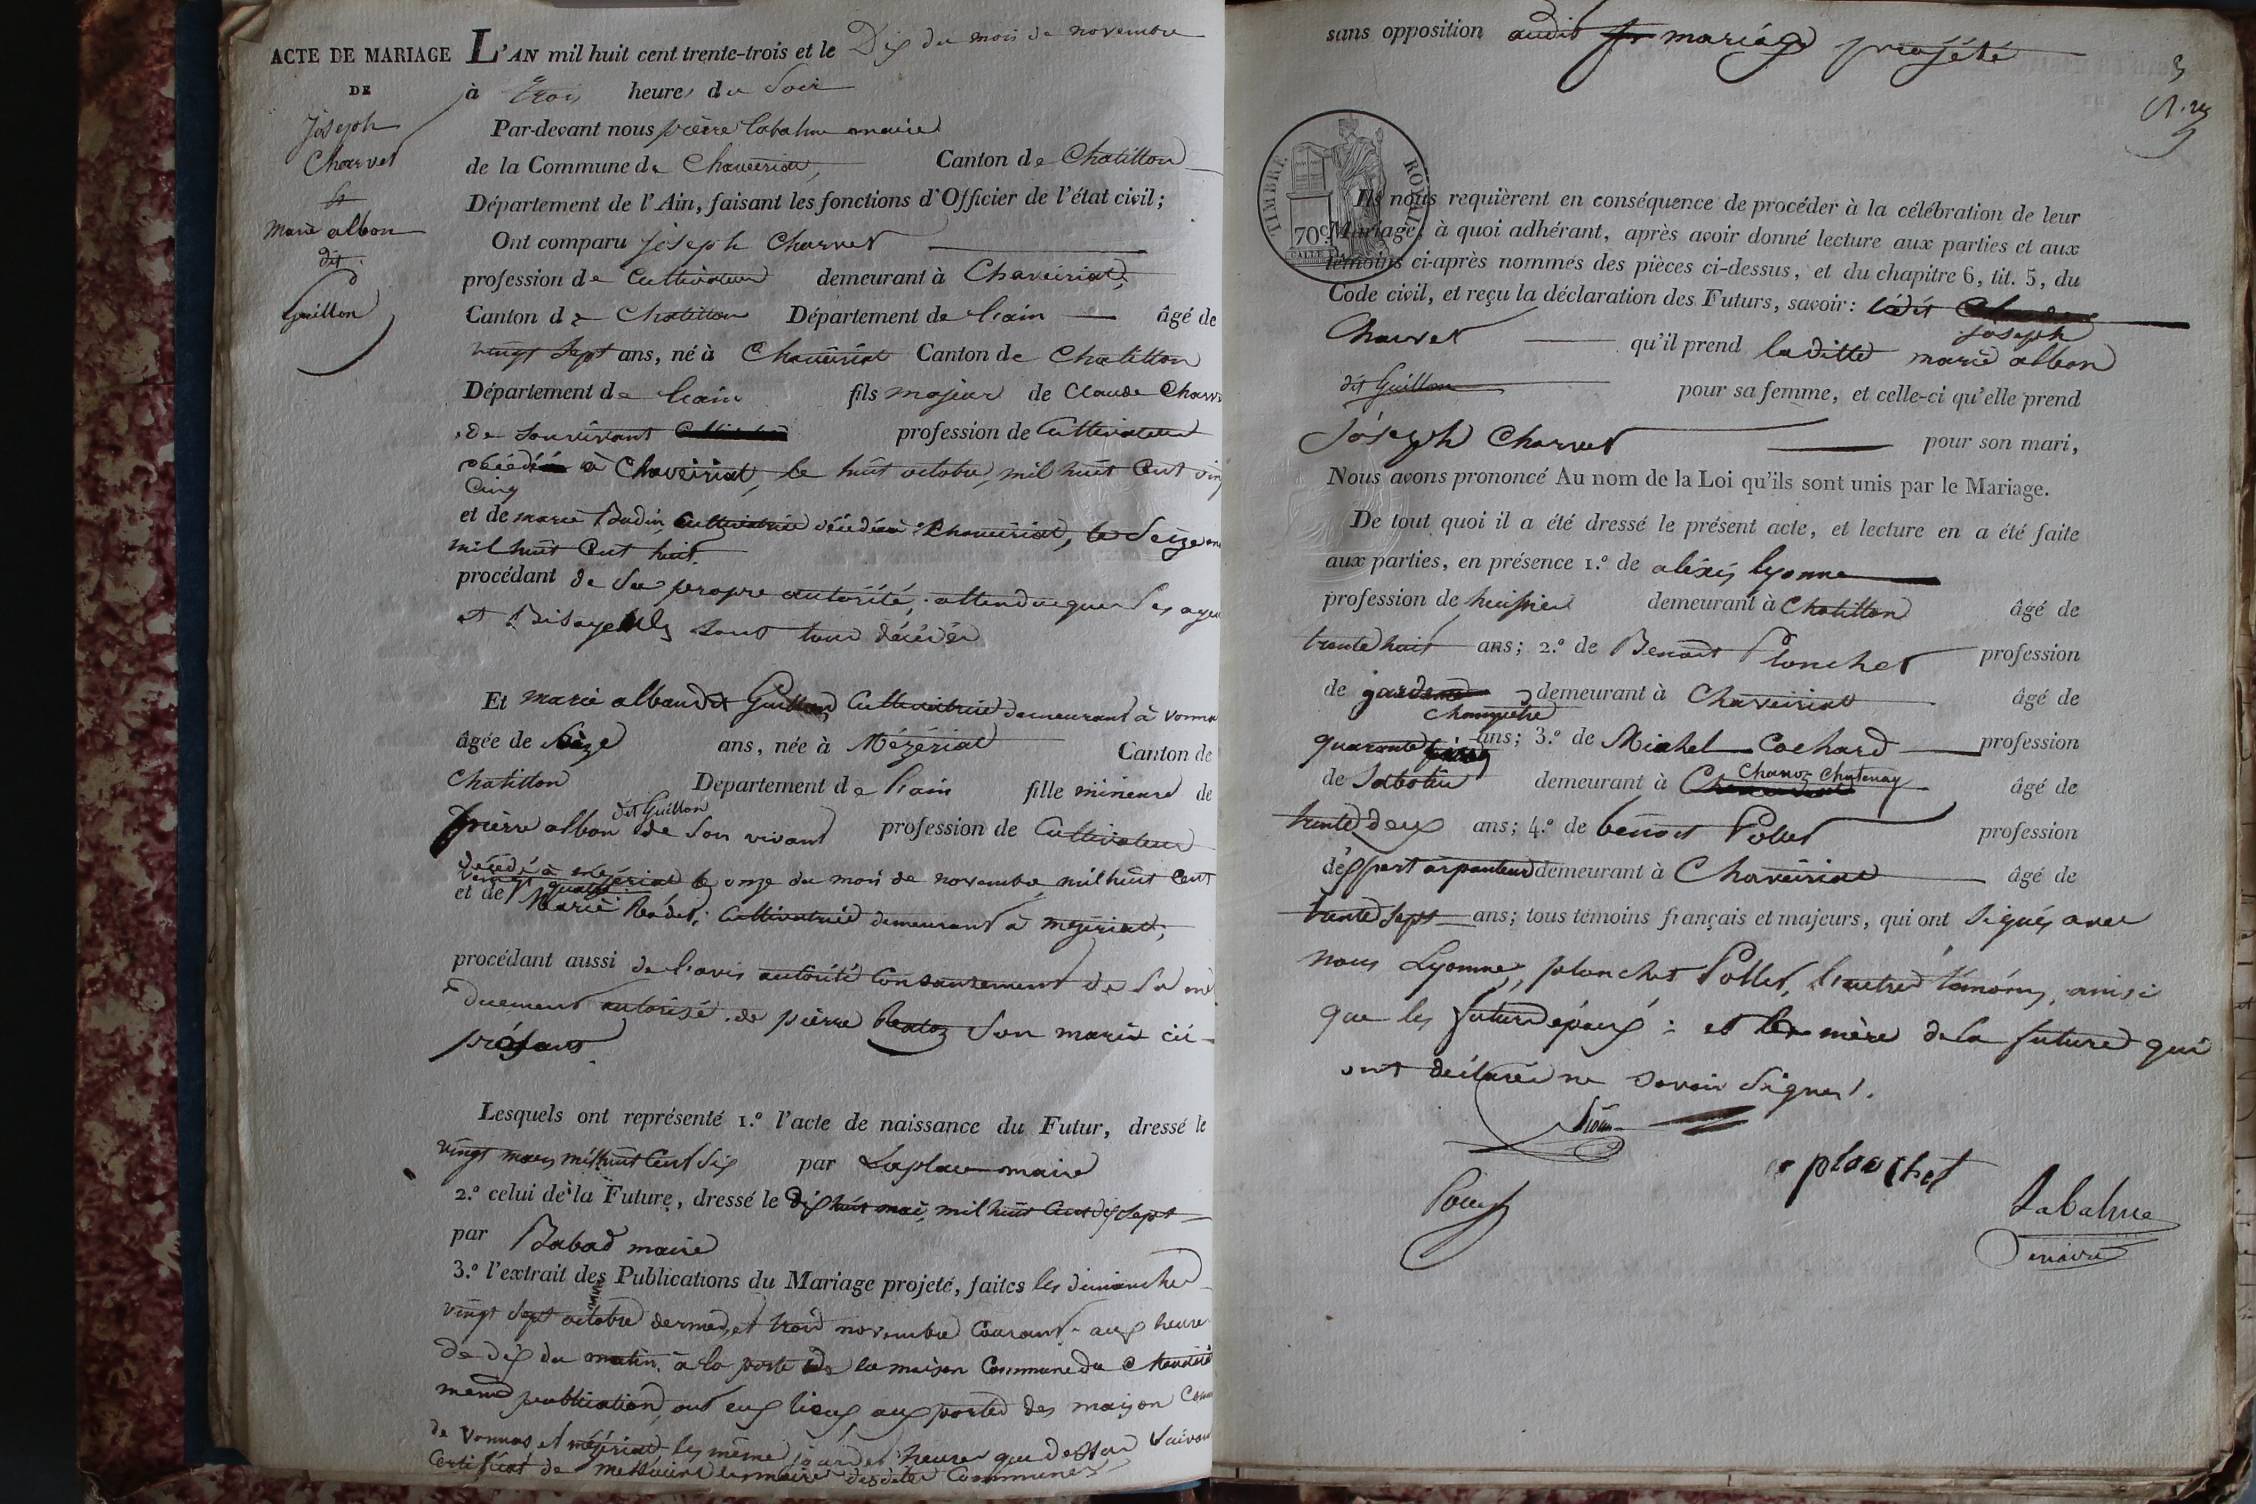 ACTE DE MARIAGE
DE
Joseph
Charvet
&
marie albon
dit
Guillon
L'AN mil huit cent trente-trois et le Dix du mois de novembre
à trois heures du Soir
Par-devant nous pierre Labalme maire
de la Commune de Chaveiriat, Canton de Chatillon
Département de l'Ain, faisant les fonctions d'Officier de l'état civil;
Ont comparu joseph Charvet
profession de Cultivateur demeurant à Chaveiriat,
Canton de Chatillon Département de l'ain âgé de
vingt Sept ans, né à Chaveiriat Canton de Chatillon
Département de l'ain fils majeur de Claude Charv
de Son vivant profession de Cultivateur
décédé à Chaveiriat, le huit octobre, mil huit Cent vin
Cinq
et de marie Budin, Cultivatrice décédée à Chaveiriat, le Seize
mil huit Cent huit.
procédant de Sa propre autorité, attendu que Ses ayeu
et Bisayeuls sont tous décédés
Et marie albon dit Guillon Cultivatrice demeurant à vonna
âgée de Seize ans, née à Mézériat Canton de
Chatillon Departement de l'ain fille mineure de
pierre albon dit Guillon de Son vivant profession de Cultivateur
décédé à mézériat le onze du mois de novembre mil huit Cent
vingt quatre
et de Marie Cultivatrice demeurant à mézériat,
procédant aussi de l'avis autorité Consentement de Sa mè
duement autorisé de pierre Son marie ici
présent
Lesquels ont représenté 1.º l'acte de naissance du Futur, dressé le
vingt mars mil huit Cent Six par Laplace maire
2.º celui de la Future, dressé le dix huit mai, mil huit Cent dix Sept
par Babad maire
3.º l'extrait des Publications du Mariage projeté, faites les dimanches
vingt Sept octobre dernier, et trois novembre Courant aux heures
de dix du matin à la porte de la maison Commune de Chaveiria
memes publications, ont eux lieux aux portes des maison Com
de vonnas et mézériat les même jour et heures que dessus Suivant
Certificat de messieurs les maires desdites Communes
sans opposition audit mariage projété
Ils nous requièrent en conséquence de procéder à la célébration de leur
Mariage; à quoi adhérant, après avoir donné lecture aux parties et aux
témoins ci-après nommés des pièces ci-dessus, et du chapitre 6, tit. 5, du
TIMBRE ROYAL
70 c.
Code civil, et reçu la déclaration des Futurs, savoir: ledit
joseph
Charvet qu'il prend laditte marie albon
dit Guillon pour sa femme, et celle-ci qu'elle prend
Joseph Charvet pour son mari,
Nous avons prononcé Au nom de la Loi qu'ils sont unis par le Mariage.
De tout quoi il a été dressé le présent acte, et lecture en a été faite
aux parties, en présence 1.º de aléxis Lyonne
profession de huissier demeurant à Chatillon âgé de
trente huit ans; 2.º de Benoit Planchet profession
de garde demeurant à Chaveiriat âgé de
Champêtre
quarante ans; 3.º de Michel Cochard profession
de Sabotier demeurant à Chanoz Chatenay âgé de
trente deux ans; 4.º de benoit Pollet profession
d'expert arpenteur demeurant à Chaveiriat âgé de
trente Sept ans; tous témoins français et majeurs, qui ont Signés avec
nous Lyonne, planchet Pollet, l'autre témoins, ainsi
que les futurs épouх : et la mère de la future qui
ont déclarés ne Savoir Signer.
planchet
Pollet
Labalme
maire